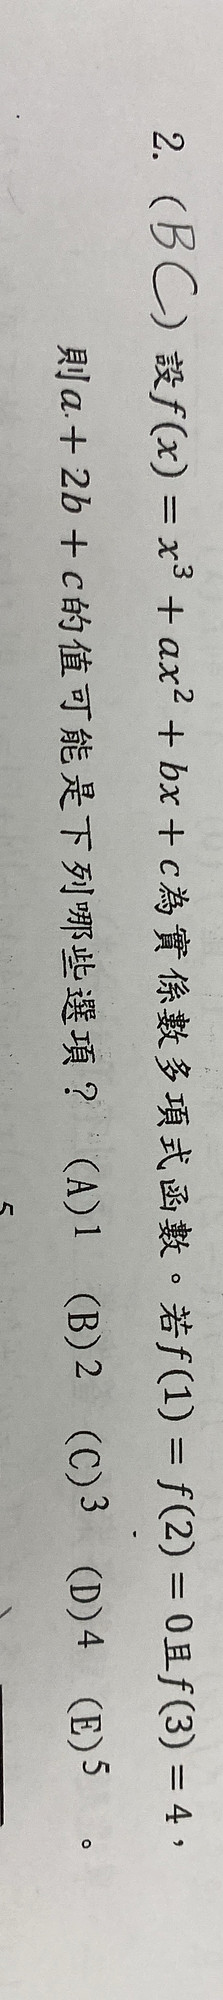 2. (BC) 設f(x) = x³ + ax² + bx + c為實係數多項式函數。若f(1) = f(2) = 0且f(3) = 4，
則a + 2b + c的值可能是下列哪些選項？ (A)1 (B)2 (C)3 (D)4 (E)5 。
5